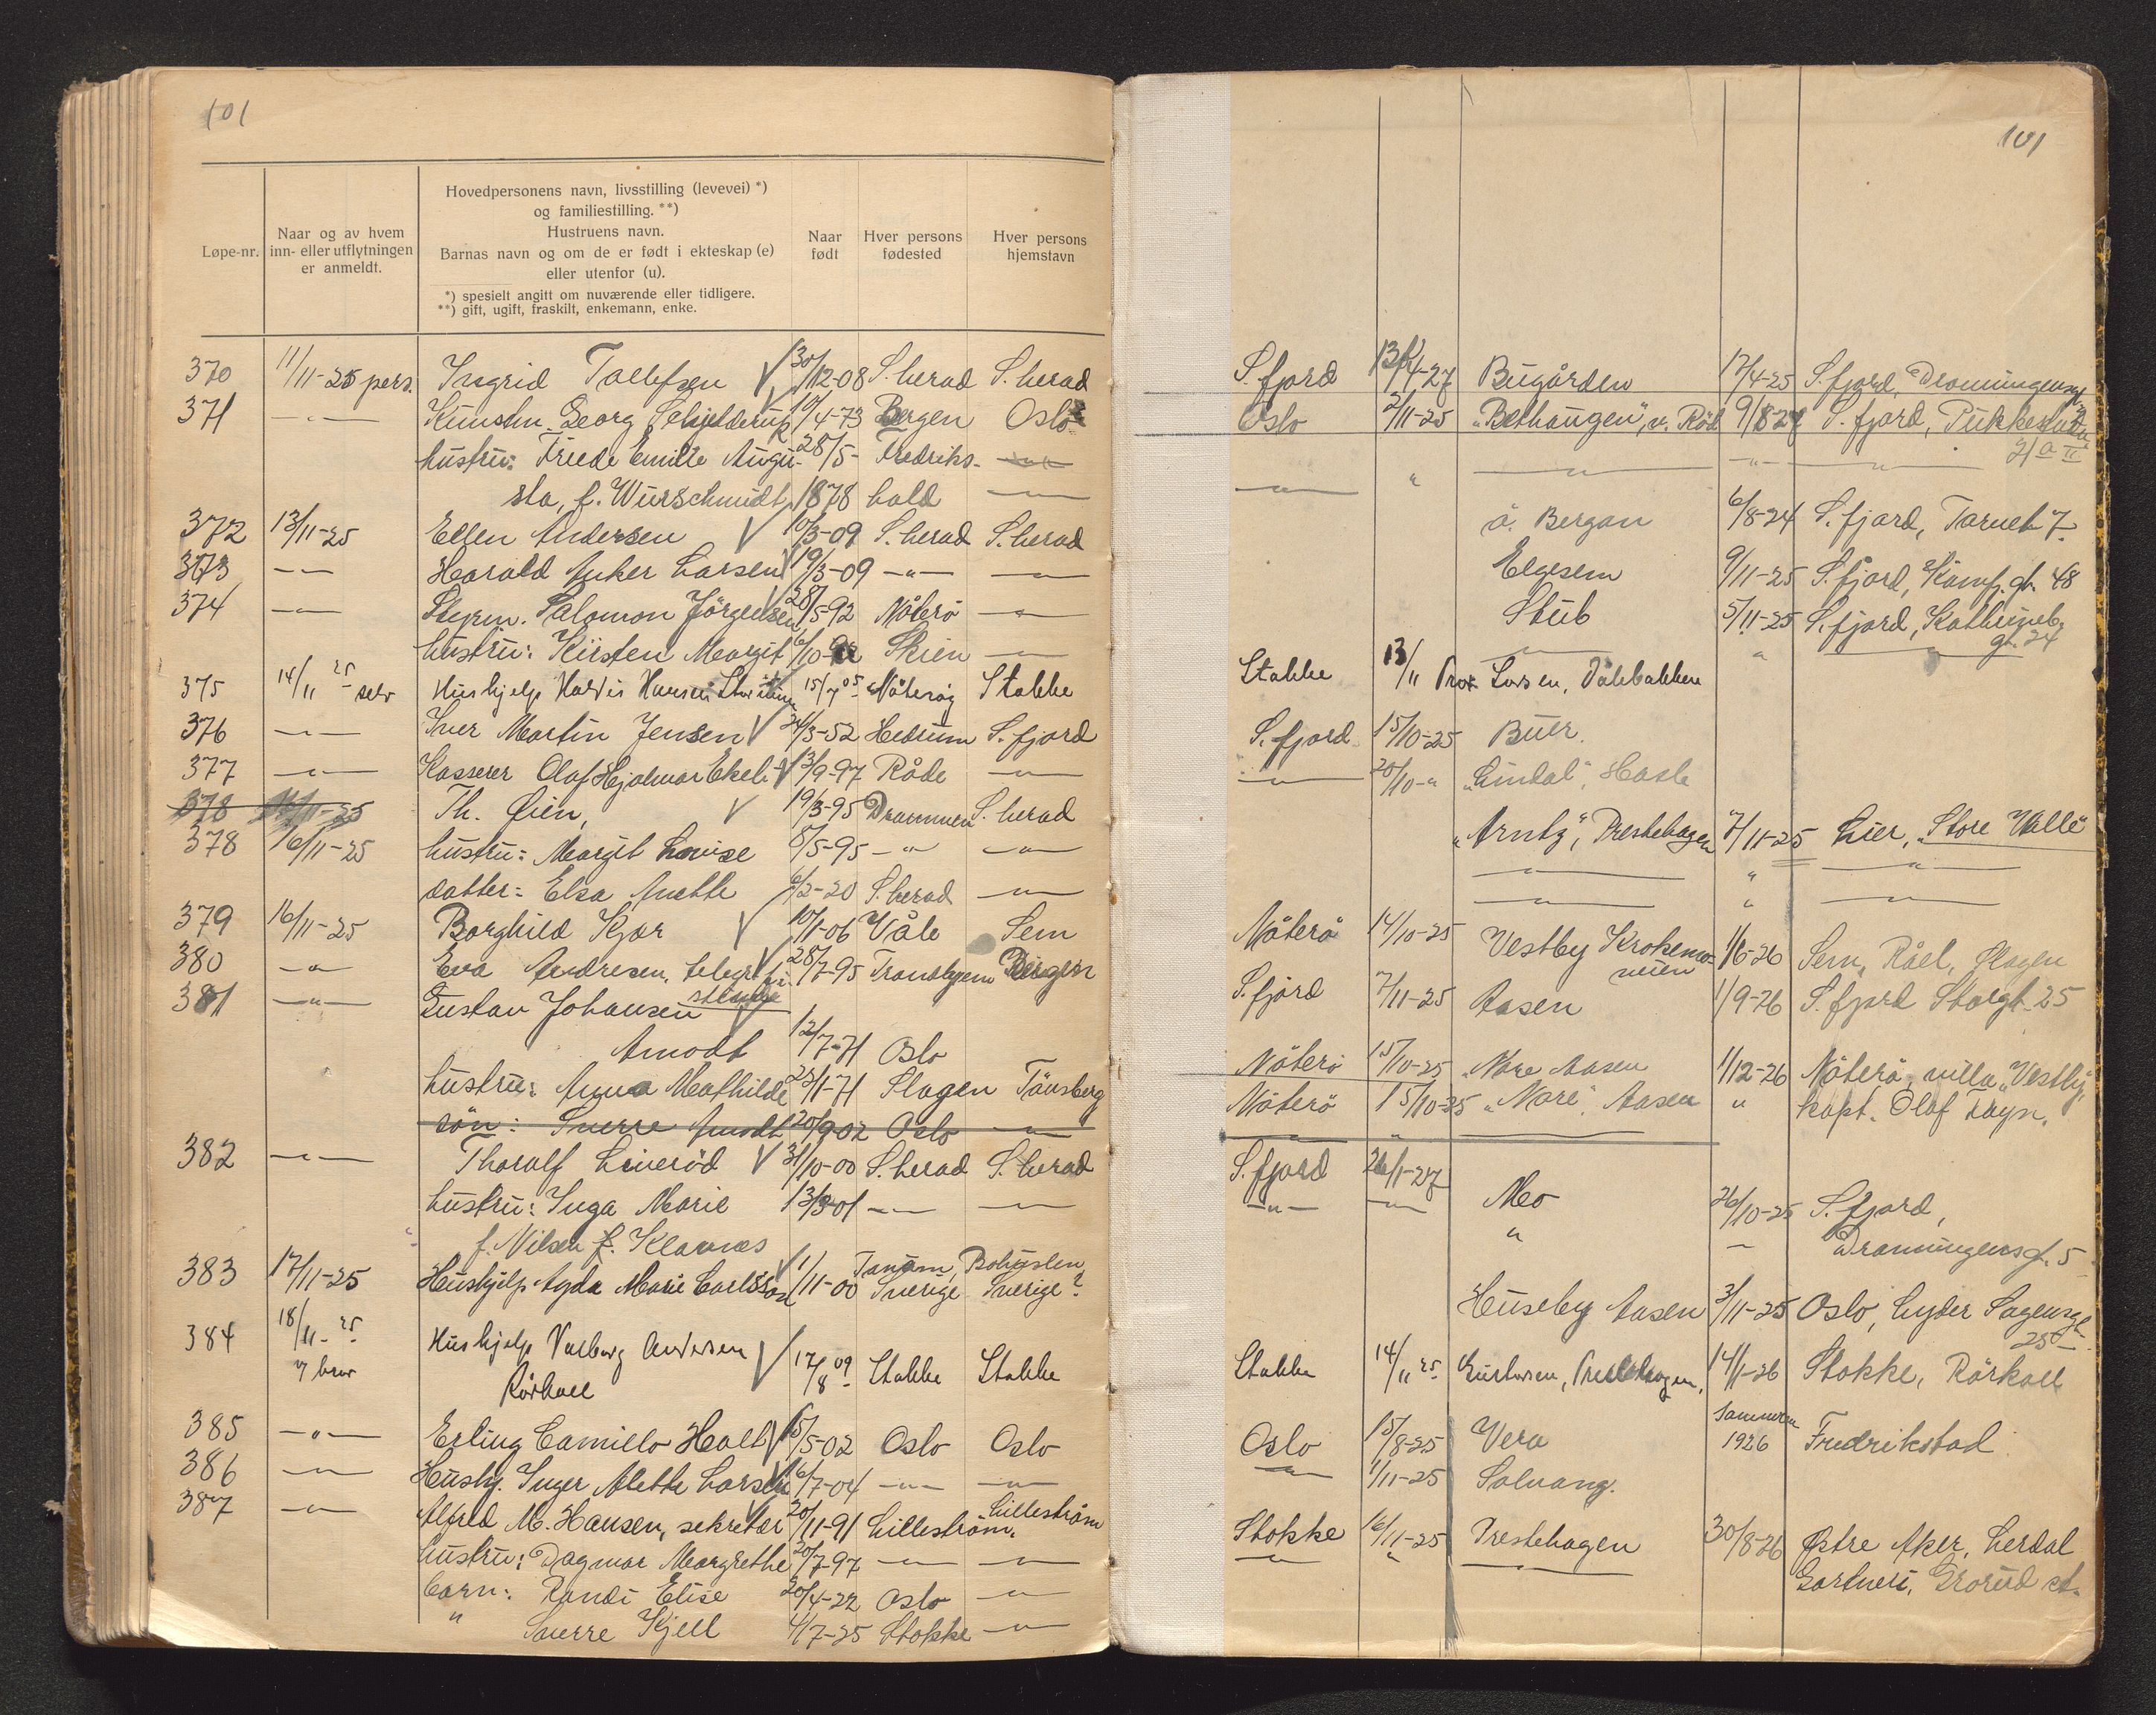 101
Løpe-nr.
Naar og av hvem
inn- eller utflytningen
er anmeldt.
Hovedpersonens navn, livsstilling (levevei) *)
og familiestilling. **)
Hustruens navn.
Barnas navn og om de er født i ekteskap (e)
eller utenfor (u).
*) spesielt angitt om nuværende eller tidligere.
**) gift, ugift, fraskilt, enkemann, enke.
Naar
født
Hver persons
fødested
Hver persons
hjemstavn
370 11/11-25 pers. Ingrid Tollefsen 30/12-08 S. herad S. herad
371 -"- Kunstm. Georg Schjelderup 10/4-73 Bergen Oslo
hustru: Friede Emilie Augu- 28/5- Fredriks- -"-
sta, f. Würschmidt, 1878 hald -"-
372 13/11-25 Ellen Andersen 10/3-09 S. herad S. herad
373 -"- Harald Anker Larsen 19/3-09 -"- -"-
374 -"- Styrm. Salomon Jörgensen 28/5-92 Nöterö -"-
hustru: Kirsten Margit 6/10- Skien -"-
375 14/11 25 - selv Hushjelp Haldis Hansen 15/7 05 Nöteröy Stokke
376 -"- Iver Martin Jensen 24/3-52 Hedrum S. fjord
377 -"- Kasserer Olaf Hjalmar Ekeli 13/9-97 Råde -"-
378 Th. Øien, 19/3-95 Drammen S. herad
378 16/11-25 hustru: Margit Lovise 8/5-95 -"- -"-
datter: Elsa Anette 6/2-20 S. herad -"-
379 16/11-25 Borghild Kjær 10/1-06 Våle Sem
380 -"- Eva Andresen, telegrafi- 28/7-95 Trondhjem Bergen
stinde
381 -"- Gustav Johansen
Amodt 12/7-71 Oslo
hustru: Anna Mathilde 23/1-71 Slagen Tönsberg
sön: Sverre Amodt 20/9-02 Oslo -"-
382 -"- Thoralf Liveröd 31/10-00 S. herad S. herad
hustru: Inga Marie 13/3-01 -"- -"-
f. Nilsen f. Klavnes
Tanum, Bohuslen
383 17/11-25 Hushjelp Agda Marie Carlsson 1/11-00 Sverige Sverige?
384 18/11- 25 Hushjelp Valborg Andersen
v/ brev Rörkoll 17/8 09 Stokke Stokke
385 -"- Erling Camillo Holt 15/5-02 Oslo Oslo
386 -"- Hushj. Inger Alette Larsen 16/7-04 -"- -"-
387 -"- Alfred M. Hansen, sekretær 20/11-91 Lilleström. Lilleström
hustru: Dagmar Margrethe 20/7-97 -"- -"-
barn: Randi Elise 20/4-22 Oslo -"-
" Sverre Kjell 4/7-25 Stokke -"-
101
S. fjord 13/4-27 Bugården 17/4-25 S. fjord, Dronningensgt.
Oslo 2/11-25 "Bethaugen", v. Röd 9/8-27 S. fjord, Pukkestad
21 a II
-"- " -"- -"- -"-
ö. Bergan 6/8-24 S. fjord, Torvet 7.
Elgesem 9/11-25 S. fjord, Kamf. gt. 48
Stub 5/11-25 S. fjord, Kathrineb.
gt. 24
-"- " -"-
Stokke 13/11 Larsen, Dölebakken
S. fjord 15/10-25 Buer.
-"- 20/10-" "Lindal", Hasle
"Arntz", Prestehagen 7/11-25 Lier, "Store Valle"
-"- " -"-
-"- " -"-
Nöterö 14/10-25 Vestby Krokemo-
veien 1/6-26 Sem, Råel, Slagen
S. fjord 7/11-25 Aasen 1/9-26 S. fjord Storgt. 25
Nöterö 15/10-25 "Nore" Aasen 1/12-26 Nöterö, villa "Vestby"
Nöterö 15/10-25 "Nore" Aasen " kapt. Olaf
-"- " -"-
S. fjord 26/1-27 Mo 26/10-25 S. fjord,
-"- -"- " - Dronningensgt. 5
Huseby Aasen 3/11-25 Oslo, Lyder Sagensgt.
25
Stokke 14/11 25 Gustavsen, Prestehagen, 14/1-26 Stokke, Rörkoll
Oslo 15/8-25 Vera Sommeren
1926 Fredrikstad
-"- 1/11-25 Solvang.
Stokke 16/11-25 Prestehagen 30/8-26 Østre Aker, Lerdal
-"- " -"- Gartneri, Grorud st.